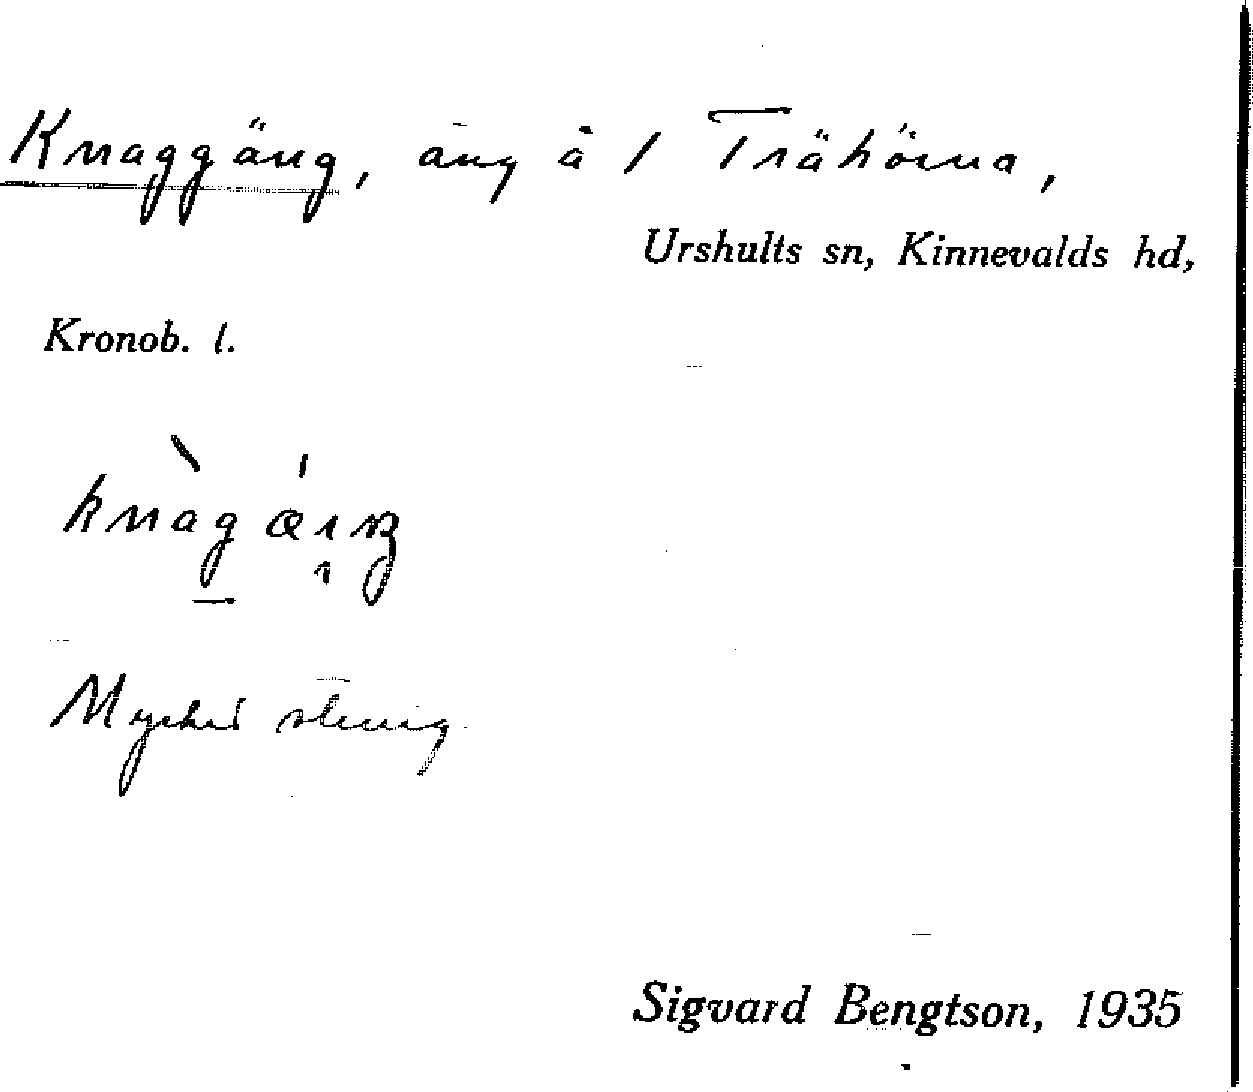 Knaggäng, äng å 1 Trähörna,
Urshults sn, Kinnevalds hd,
Kronob. l.
Mycket stenig
Sigvard Bengtson, 1935